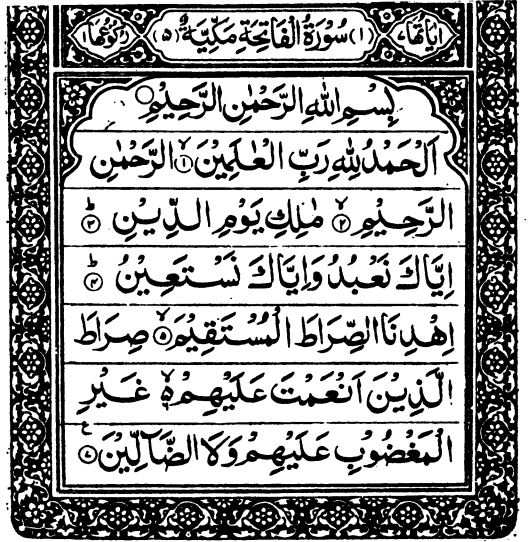 اٰيَاتُهَا ۷ (۱) سُوْرَةُ الْفَاتِحَةِ مَكِّيَّةٌ (۵) رُكُوْعُهَا ۱
بِسْمِ اللّٰهِ الرَّحْمٰنِ الرَّحِيْمِ ○
اَلْحَمْدُ لِلّٰهِ رَبِّ الْعٰلَمِيْنَ ۙ﴿۱﴾ الرَّحْمٰنِ
الرَّحِيْمِ ۙ﴿۲﴾ مٰلِكِ يَوْمِ الدِّيْنِ ؕ﴿۳﴾
اِيَّاكَ نَعْبُدُ وَاِيَّاكَ نَسْتَعِيْنُ ؕ﴿۴﴾
اِهْدِنَا الصِّرَاطَ الْمُسْتَقِيْمَ ۙ﴿۵﴾ صِرَاطَ
الَّذِيْنَ اَنْعَمْتَ عَلَيْهِمْ ۙ۵ غَيْرِ
الْمَغْضُوْبِ عَلَيْهِمْ وَلَا الضَّآلِّيْنَ ﴿۷﴾ ع